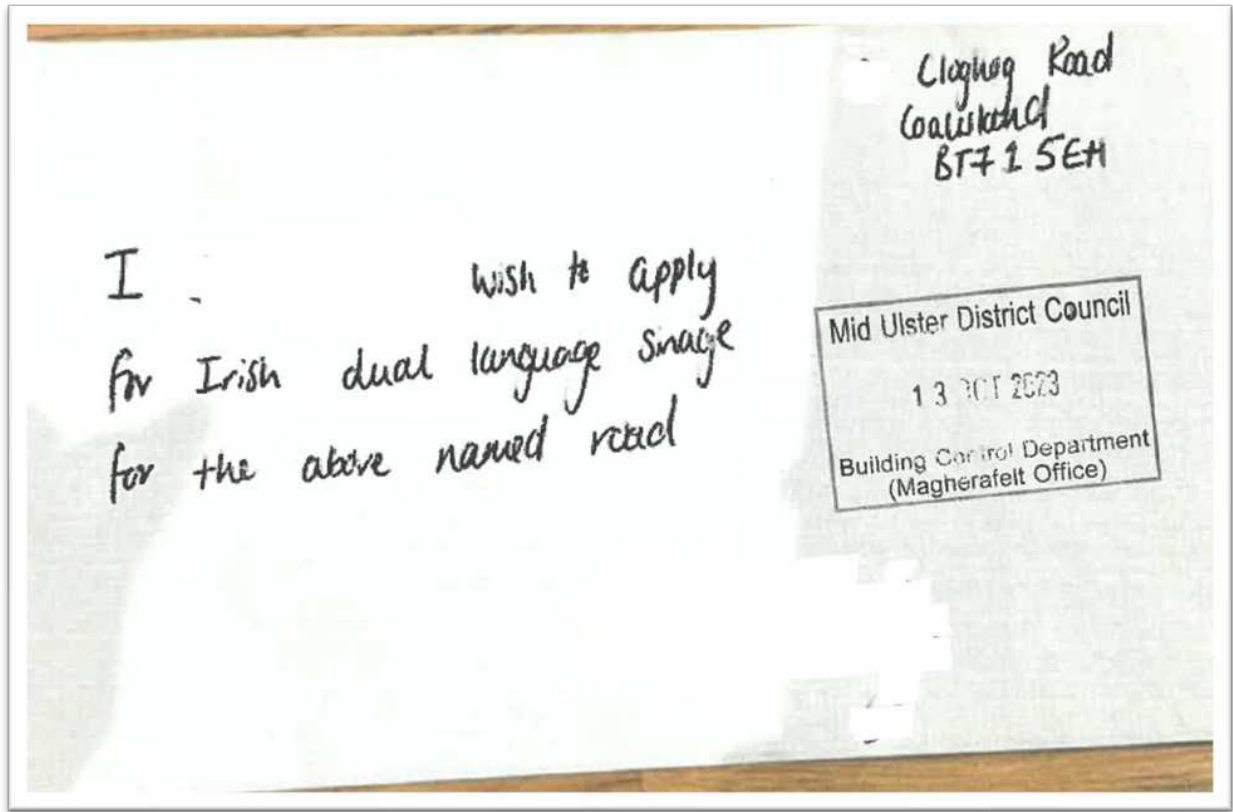 Cloghog Road
Coalisland
BT71 5EH
I . wish to apply
for Irish dual language sinage
for the above named road
Mid Ulster District Council
13 OCT 2023
Building Control Department
(Magherafelt Office)